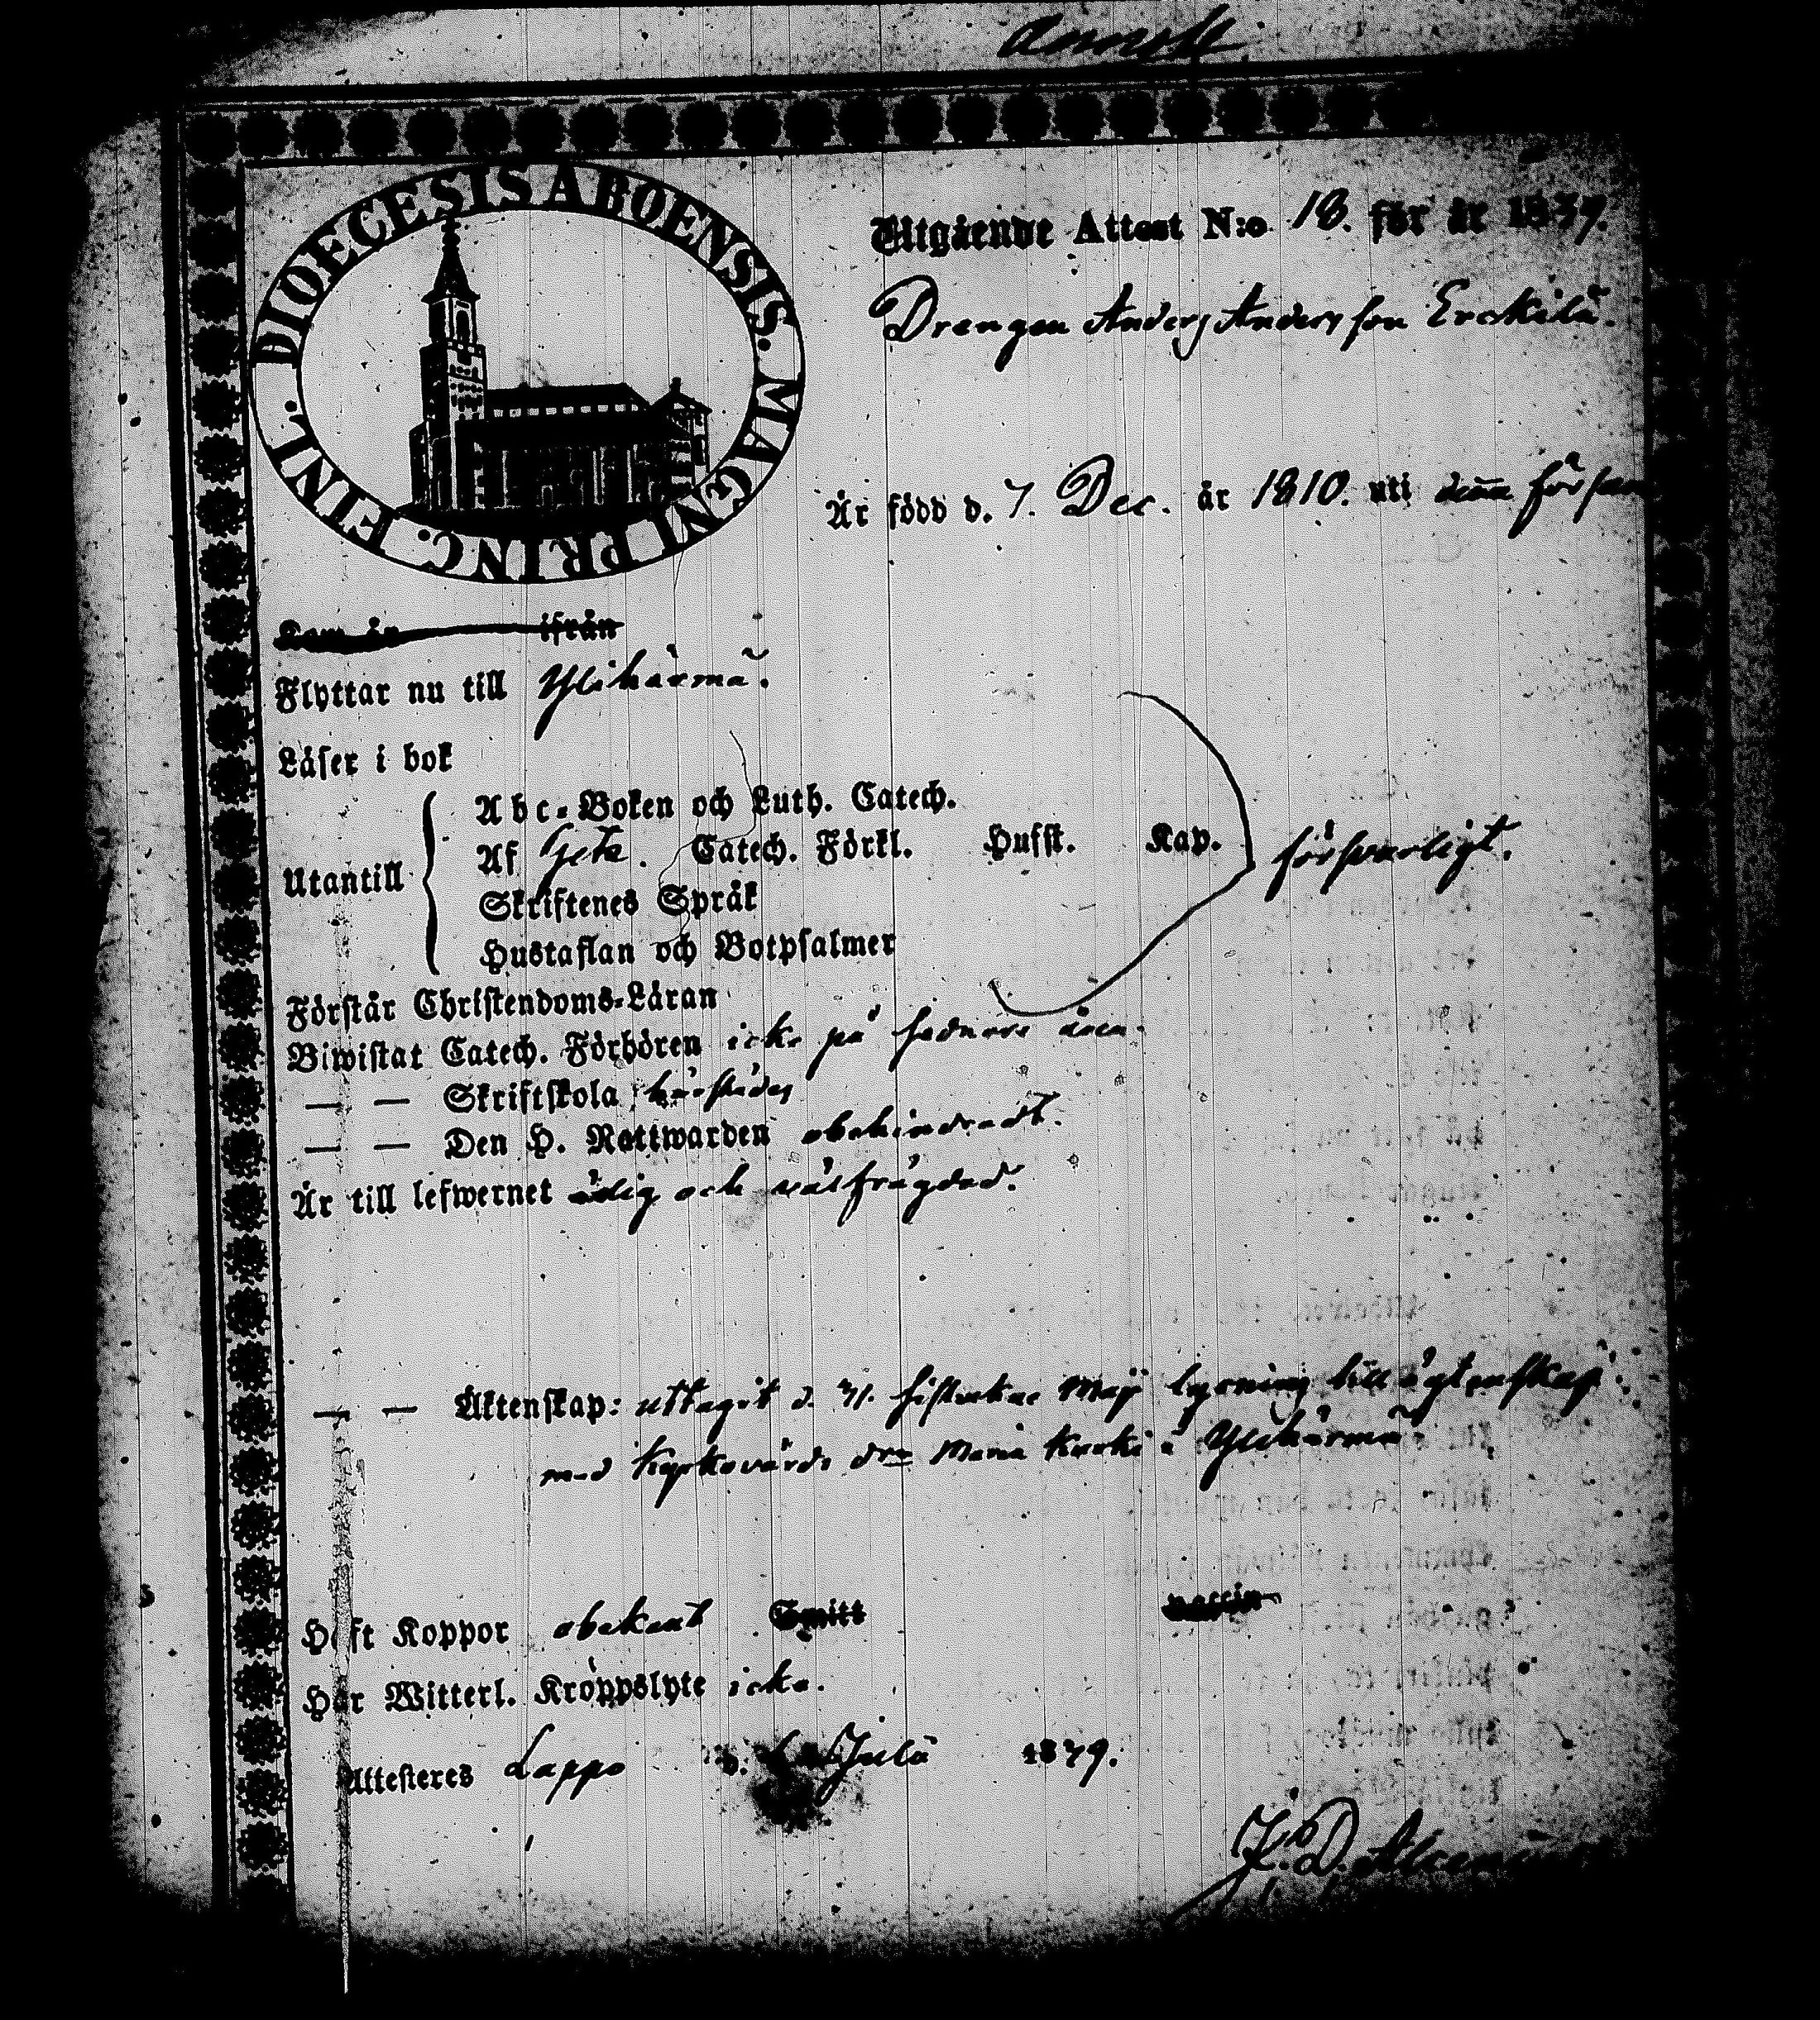 DIOECESIS ABOENSIS. MAGNI PRINC. FINL.
Utgående Attest N:o 18. för år 1839.
Drengen Anders Andersson Erckilä.
Är född d. 7. Dec. år 1810. uti denna förSam
Kom år ifrån
Flyttar nu till Ylihärmä.
Läser i bok
Abc-Boken och Luth. Catech.
Utantill Af Gez. Catech. Förkl. Husst. Kap. försvarligt.
Skriftenes Språk
Hustaflan och Botpsalmer
Förstår Christendoms-Läran
Biwistat Catech. Förhören icke på sednare åren.
— — Skriftskola härstädes
— — Den H. Nattwarden obehindradt.
Är till lefwernet ärlig och välfrägdad.
— — Äktenskap: uttagit d. 31. sistvekne Maji lysning till ägtenskap
med dr Maria i Ylihärmä
Haft Koppor obekant Smitt vaccin
Har Witterl. Kroppslyte icke.
Attesteres Lappo d. Julii 1839.